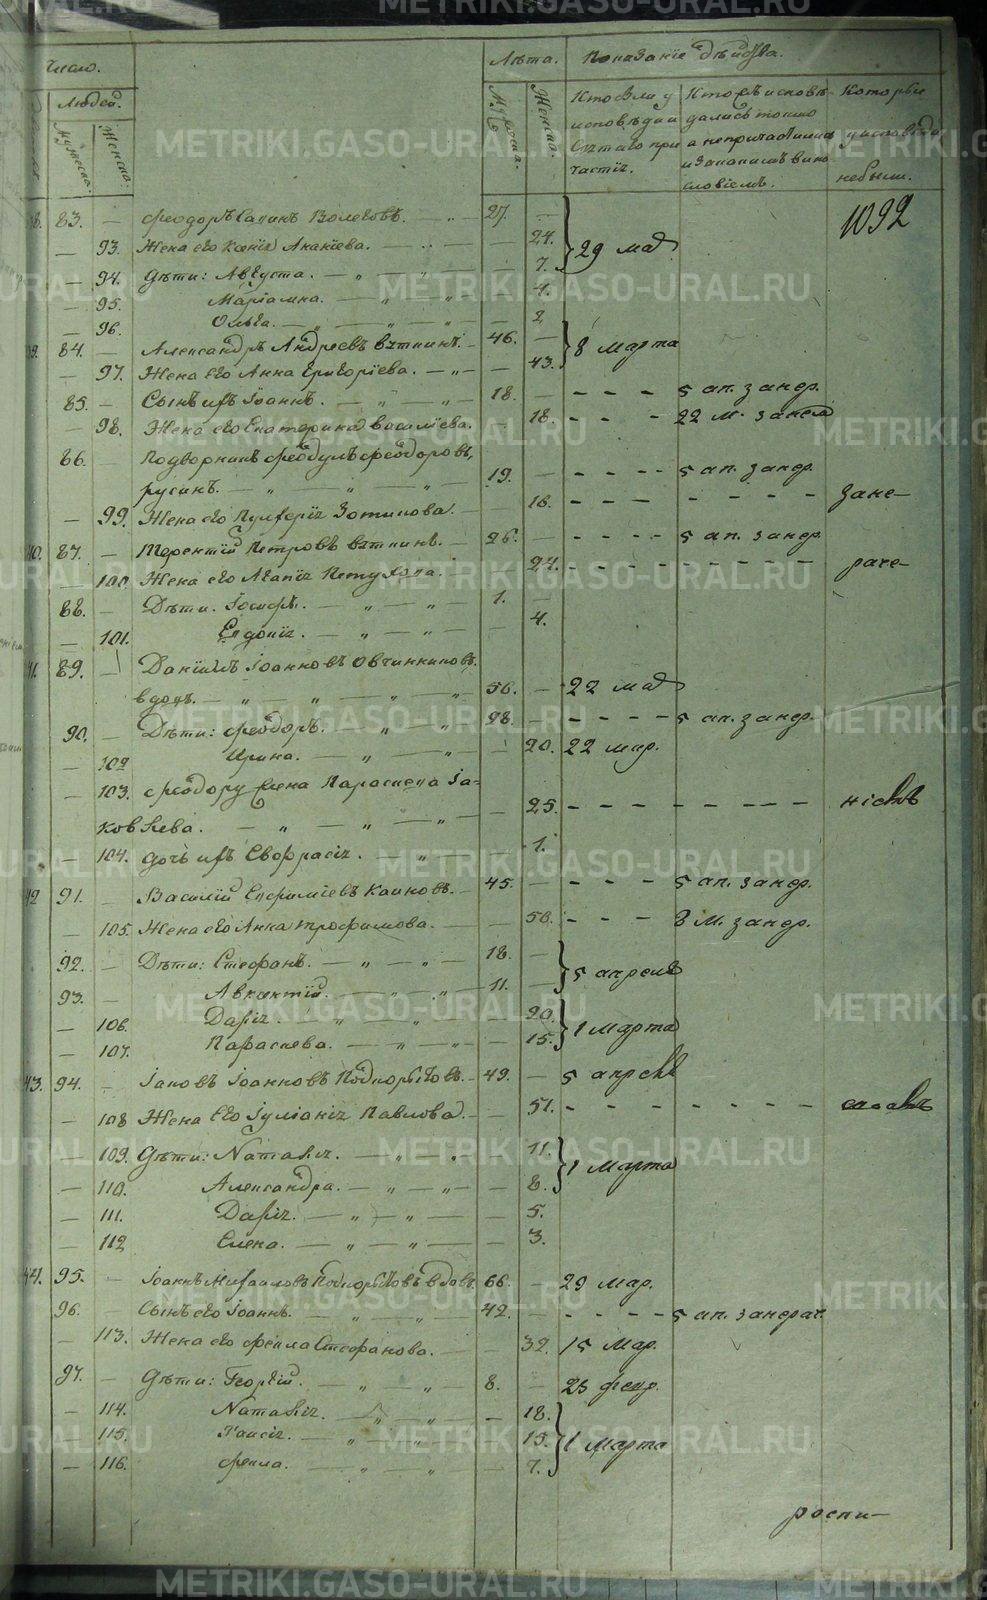 METRIKI.GASO-URAL.RU
Число. Лѣта. Показанiе дѣйства.
Людей.
Мужеска. Женска. Мужеска. Женска.
Кто были у исповѣди и святаго причастiя.
Кто же исповѣдались токмо а непричастились и за каковымъ винословiемъ.
Которые у исповѣди небыли.
1092
83. — Феодоръ 27. —
— 93. Жена его Ананiева. — 24. } 29 мар
— 94. Дѣти: Августа. — 7.
— 95. Марiамна. — 4.
— 96. Ольга. — 2
84. — Александръ Андреевъ Вяткинъ. 46. — } 8 марта
— 97. Жена его Анна Григорiева. — 43.
85. — Сынъ ихъ Iоаннъ. 18. — 5 ап. за нер.
— 98. Жена его Екатерина Василiева. — 18. 22 м. за нер
86. — Подворникъ Феодулъ Феодоровъ,
русинъ. 19. — 5 ап. за нер.
— 99. Жена его Зотикова. — 18. За не-
87. — Терентiй Петровъ Вяткинъ. 26. — 5 ап. за нер.
— 100. Жена его Агапiя — 24. раче-
88. — Дѣти: Iосифъ. 1. —
— 101. Евдокiя. — 4.
89. — Данiилъ Iоанновъ Овчинниковъ.
вдовъ. 56. — 22 мар
90. — Дѣти: Феодоръ. 28. — 5 ап. за нер.
— 102 Ирина. — 20. 22 мар.
— 103. Феодору жена Параскева Iа-
ковлева. — 25. нiемъ
— 104. Дочь ихъ Евфрасiя. — 1.
91. — Василiй Ефимiевъ 45. — 5 ап. за нер.
— 105. Жена его Анна Трофимова. — 50. 8 м. за нер.
92. — Дѣти: Стефанъ. 18. — } 5 апреля
93. — Авксентiй. 11. —
— 106. Дарiя — 20. } 1 марта
— 107. Параскева. — 15.
43. 94. — Iаковъ Iоанновъ Подкорытовъ. 49. — 5 апреля
— 108 Жена его Iулiанiя Павлова. — 51.
— 109. Дѣти: Наталiя. — 11. } 1 марта
— 110. Александра. — 8.
— 111. Дарiя. — 5.
— 112 Елена. — 3.
44. 95. — Iоаннъ Михаиловъ Подкорытовъ вдовъ. 66. — 29 мар.
96. — Сынъ его Iоаннъ. 42. — 5 ап. за нерач.
— 113. Жена его Фекла Стефанова. — 39. 15 мар.
97. — Дѣти: Георгiй. 8. — 25 февр.
— 114. Наталiя. — 18. } 1 марта
— 115. Таисiя. — 15.
— 116. Фекла. — 7.
роспи-